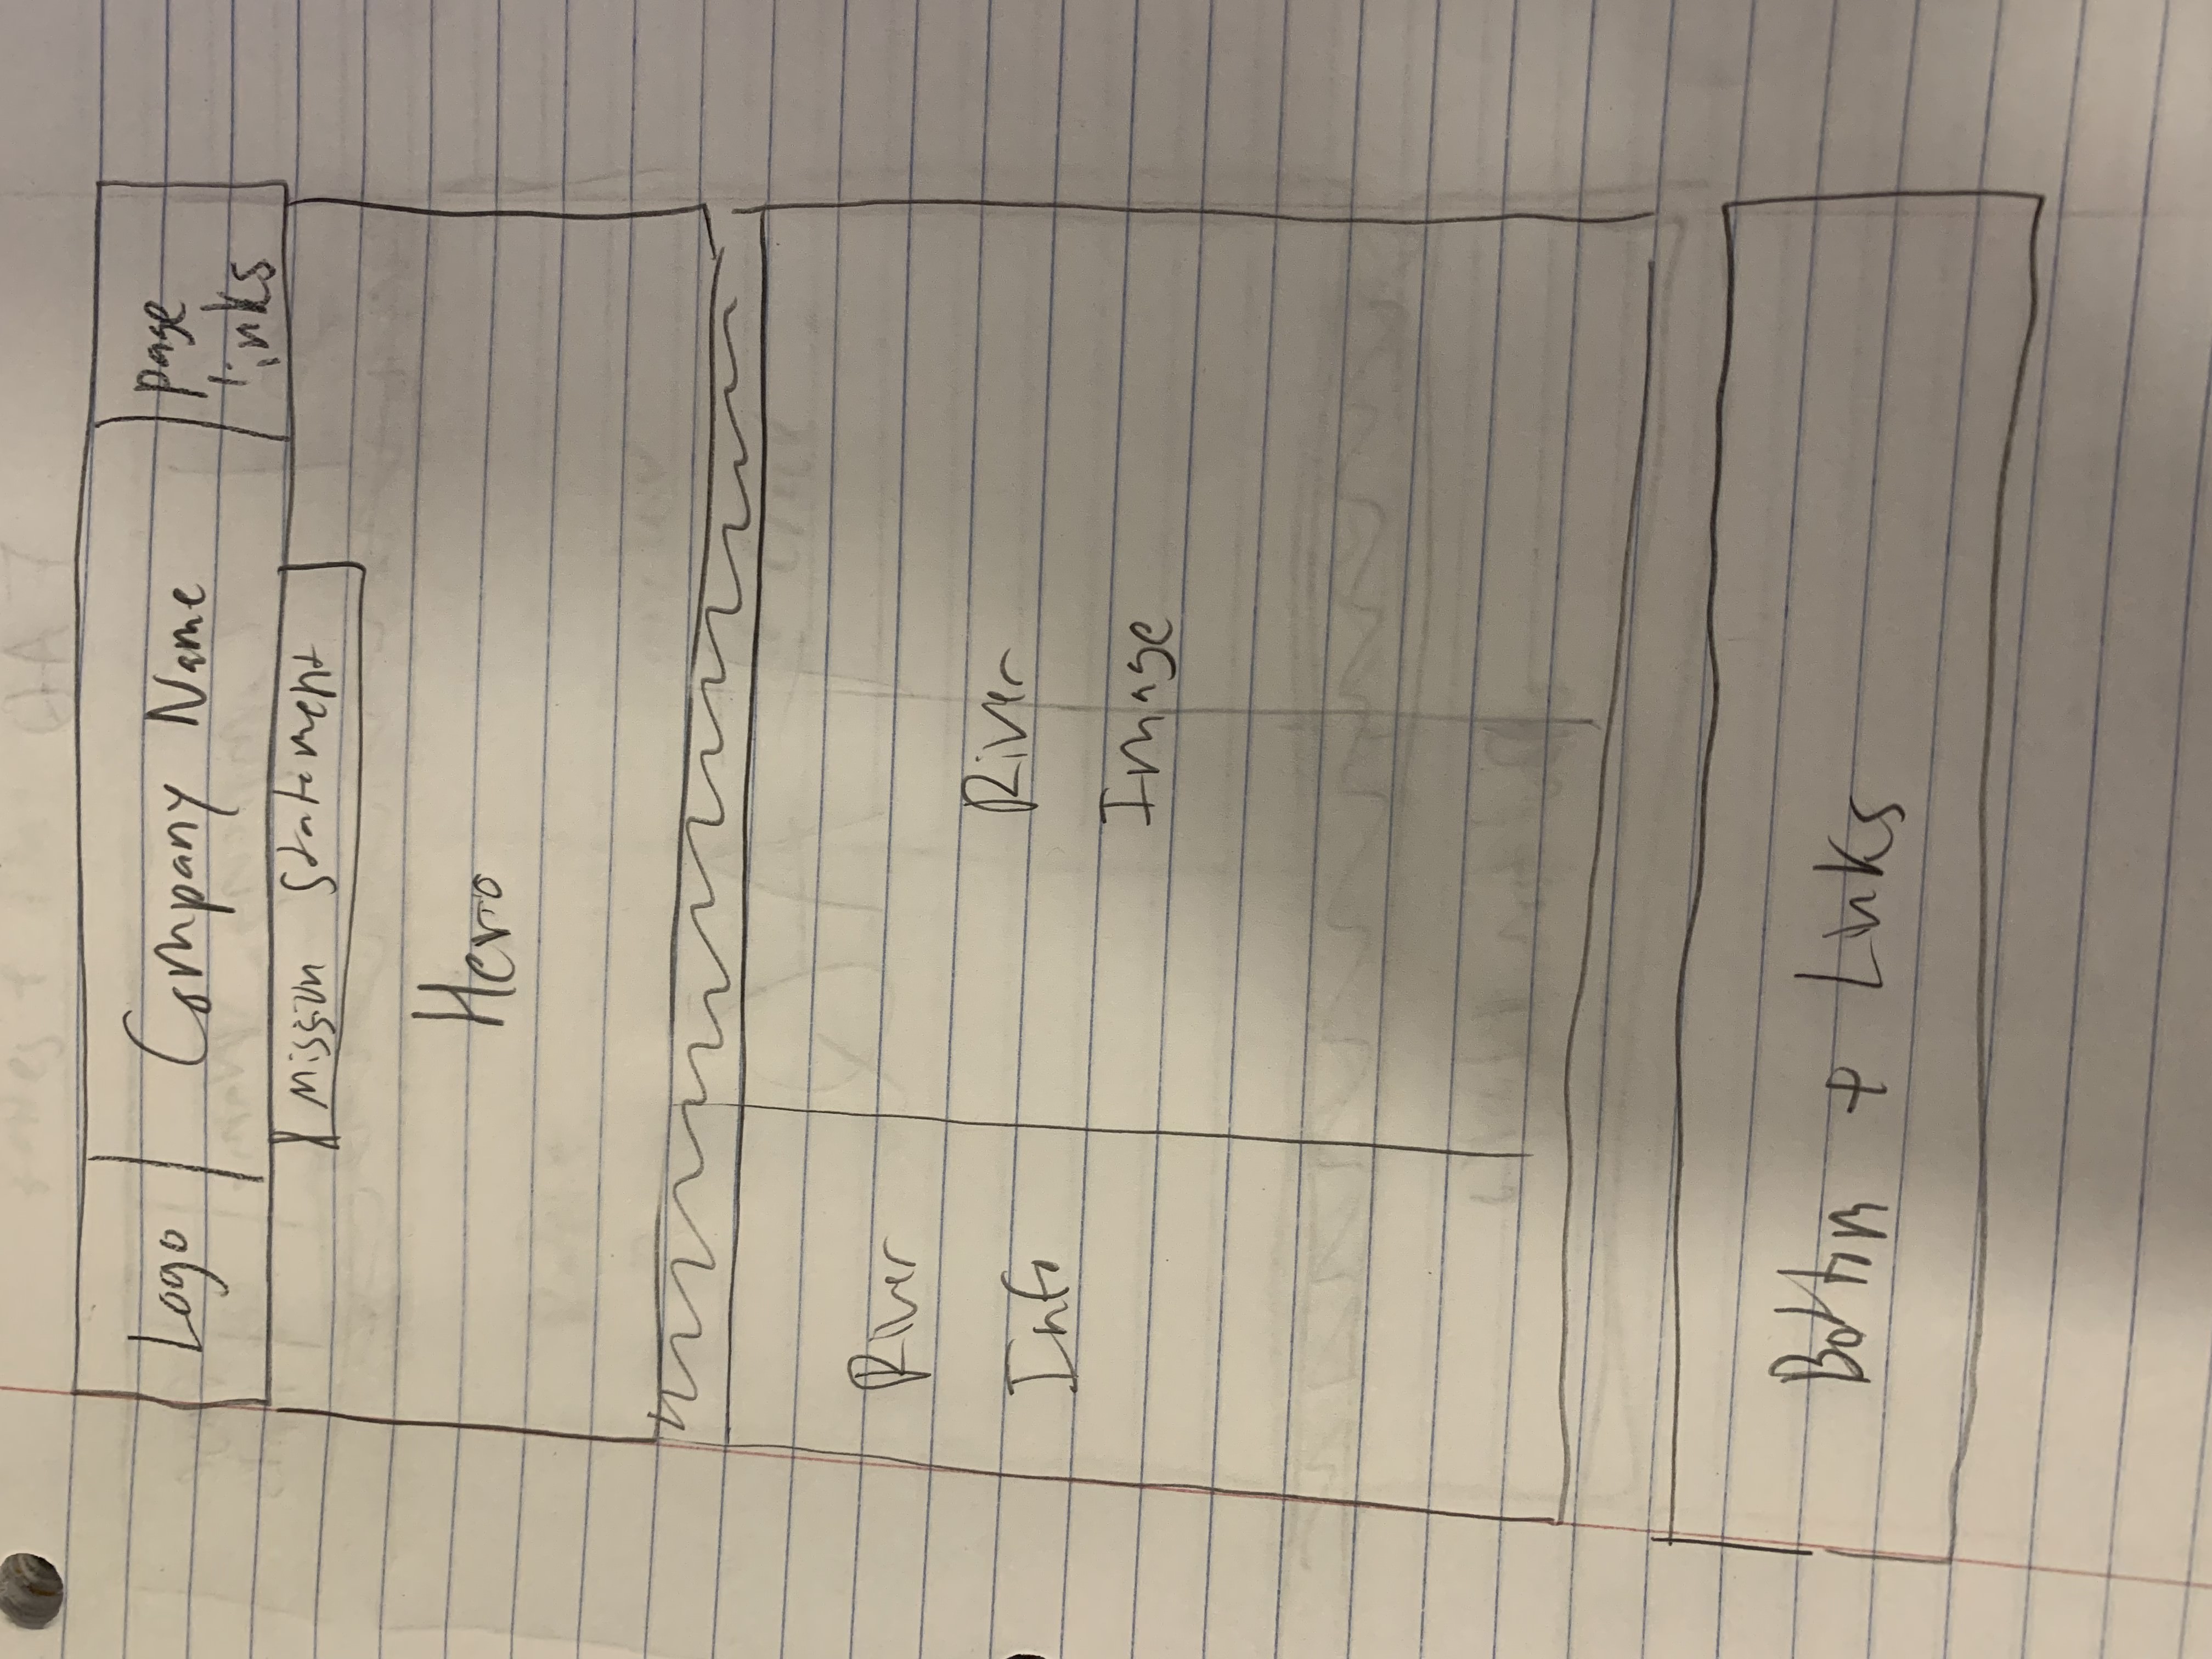 Logo
Company Name
page
links
Mission Statement
Hero
River
Info
River
Image
Bottom + Links